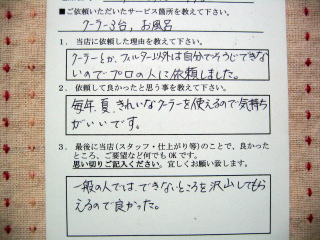 ■ご依頼いただいたサービス箇所を教えて下さい。
クーラー3台，お風呂
1． 当店に依頼した理由を教えて下さい。
クーラーとか、フィルター以外は自分でそうじできな
いのでプロの人に依頼しました。
2． 依頼して良かったと思う事を教えて下さい。
毎年、夏、きれいなクーラーを使えるので気持ち
がいいです。
3． 最後に当店(スタッフ・仕上がり等)のことで、良かった
ところ、ご要望など何でもOKです。
思い切りご記入ください。宜しくお願い致します。
一般の人では、できないところを沢山してもら
えるので良かった。